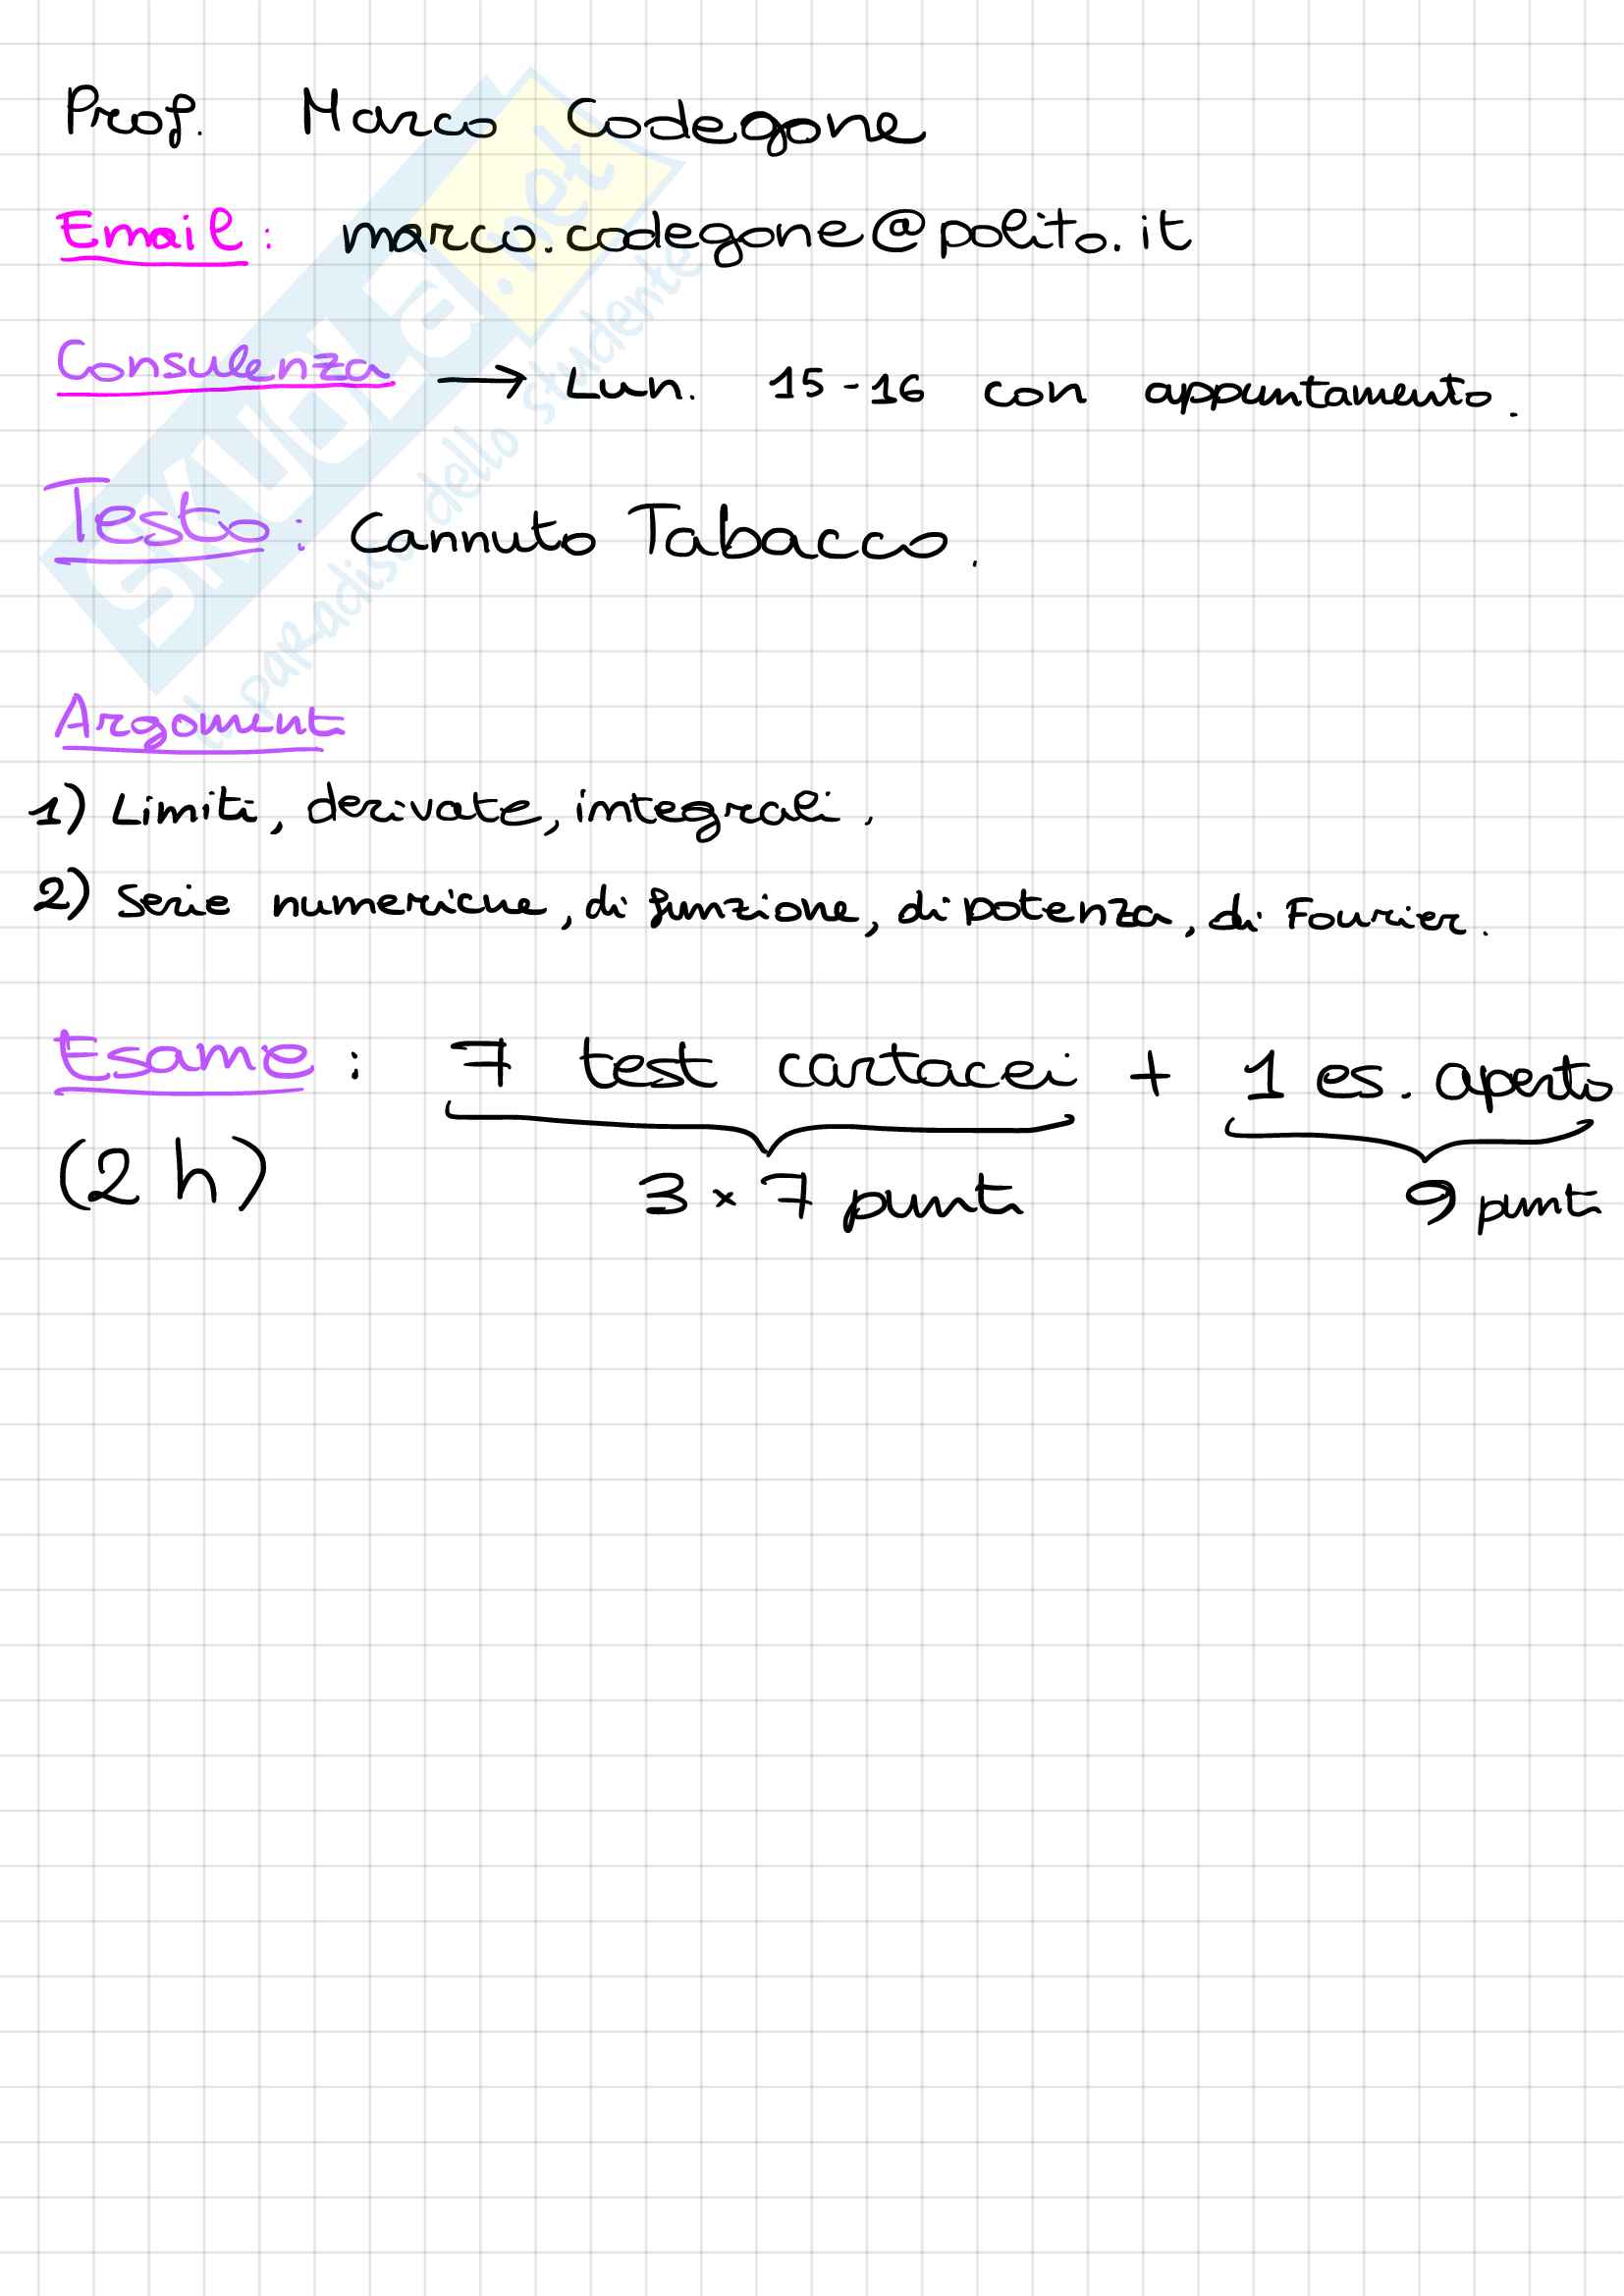 Prof. Marco Codegone
Email: marco.codegone@polito.it
Consulenza → Lun. 15-16 con appuntamento.
Testo: Cannuto Tabacco.
Argomenti
1) Limiti, derivate, integrali.
2) Serie numeriche, di funzione, di potenza, di Fourier.
Esame: 7 test cartacei + 1 es. aperto
(2 h) 3 × 7 punti 9 punti
SKUOLA.net
il paradiso dello studente